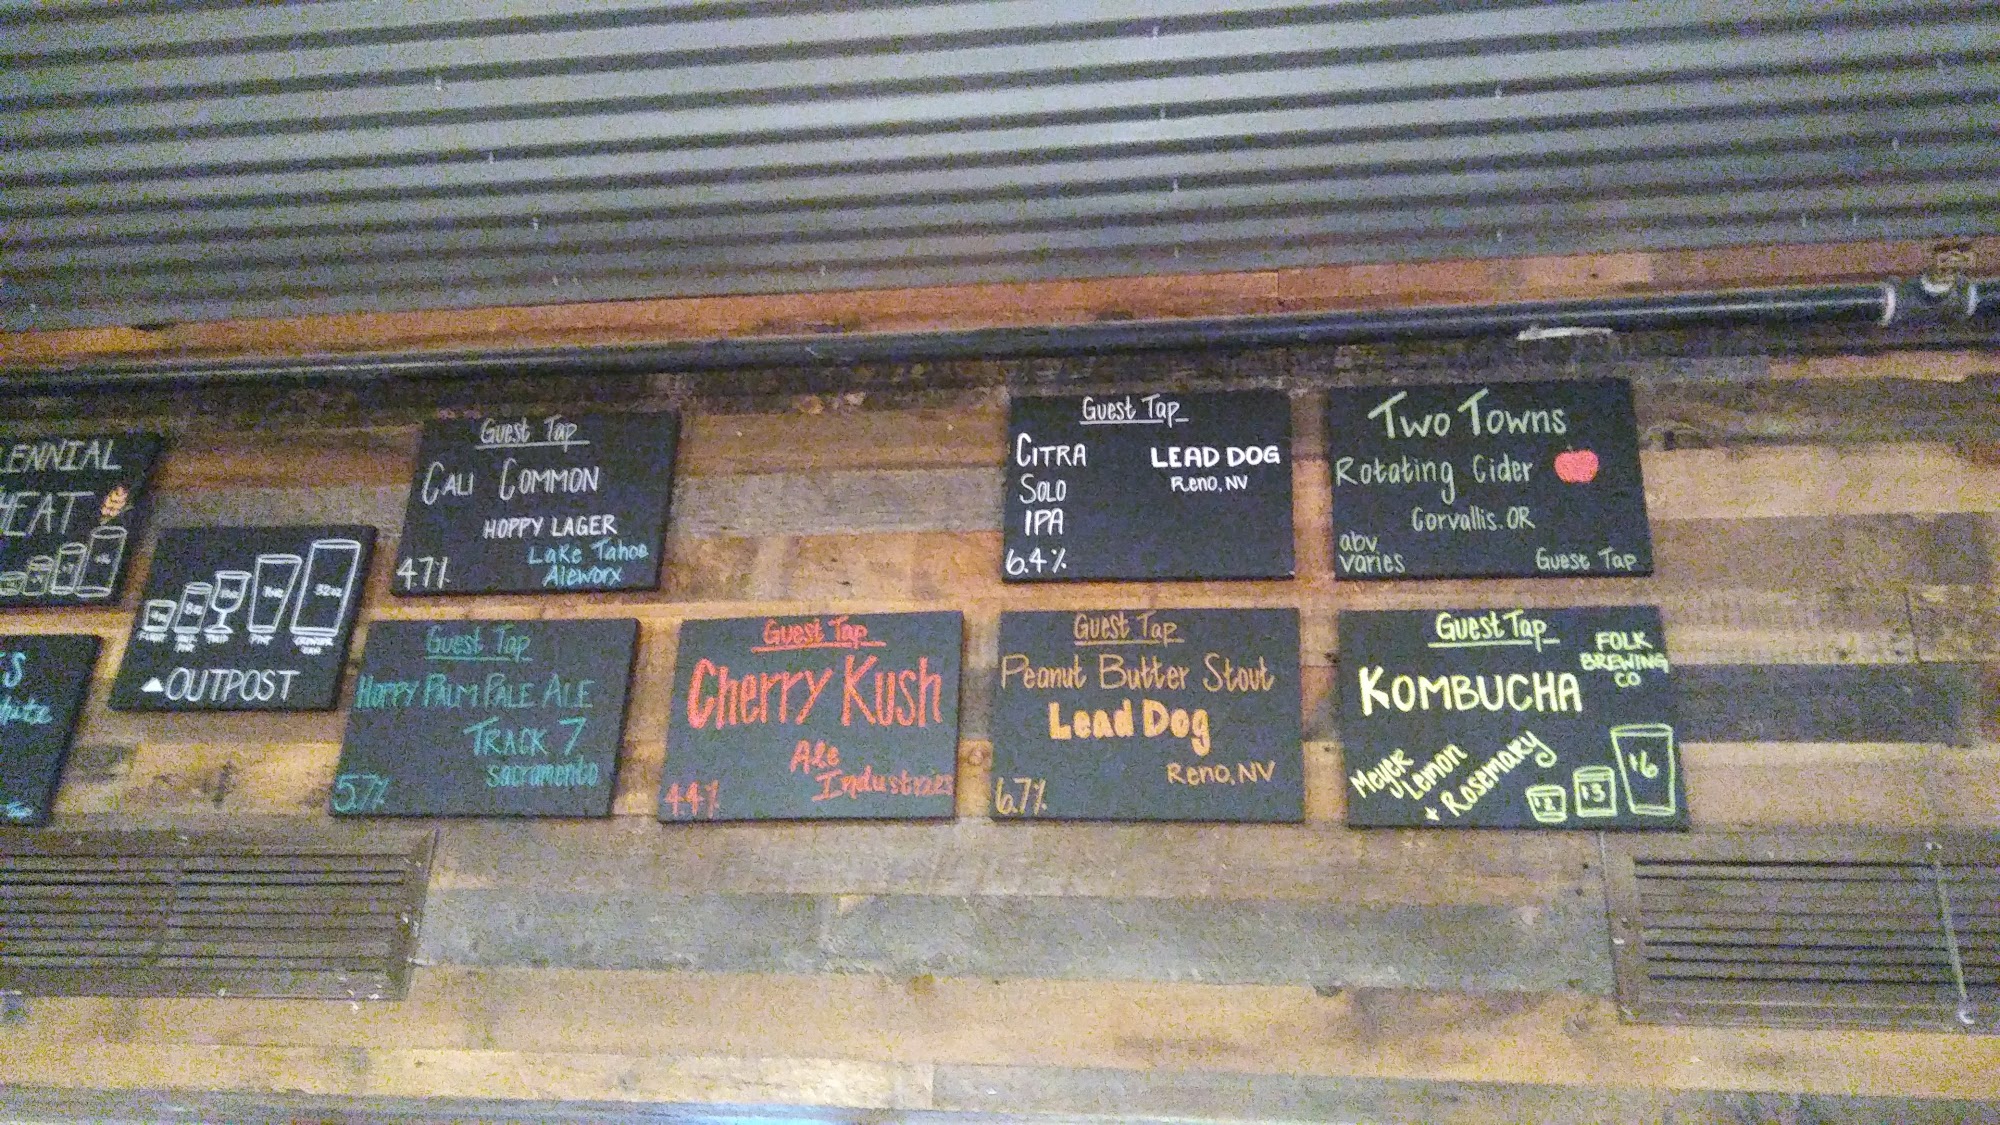 LENNIAL
HEAT
Guest Tap
CALI COMMON
HOPPY LAGER
4.7%
Lake Tahoe
Aleworx
Guest Tap
CITRA
SOLO
IPA
6.4%
LEAD DOG
Reno, NV
Two Towns
Rotating Cider
Corvallis. OR
abv
varies
Guest Tap
8oz
16oz
32oz
PINT
OUTPOST
Guest Tap
HOPPY PALM PALE ALE
TRACK 7
sacramento
5.7%
Guest Tap
Cherry Kush
Ale
Industries
4.4%
Guest Tap
Peanut Butter Stout
Lead Dog
Reno, NV
6.7%
Guest Tap
FOLK
BREWING
CO
KOMBUCHA
Meyer
Lemon
+ Rosemary
$2
$3
$6